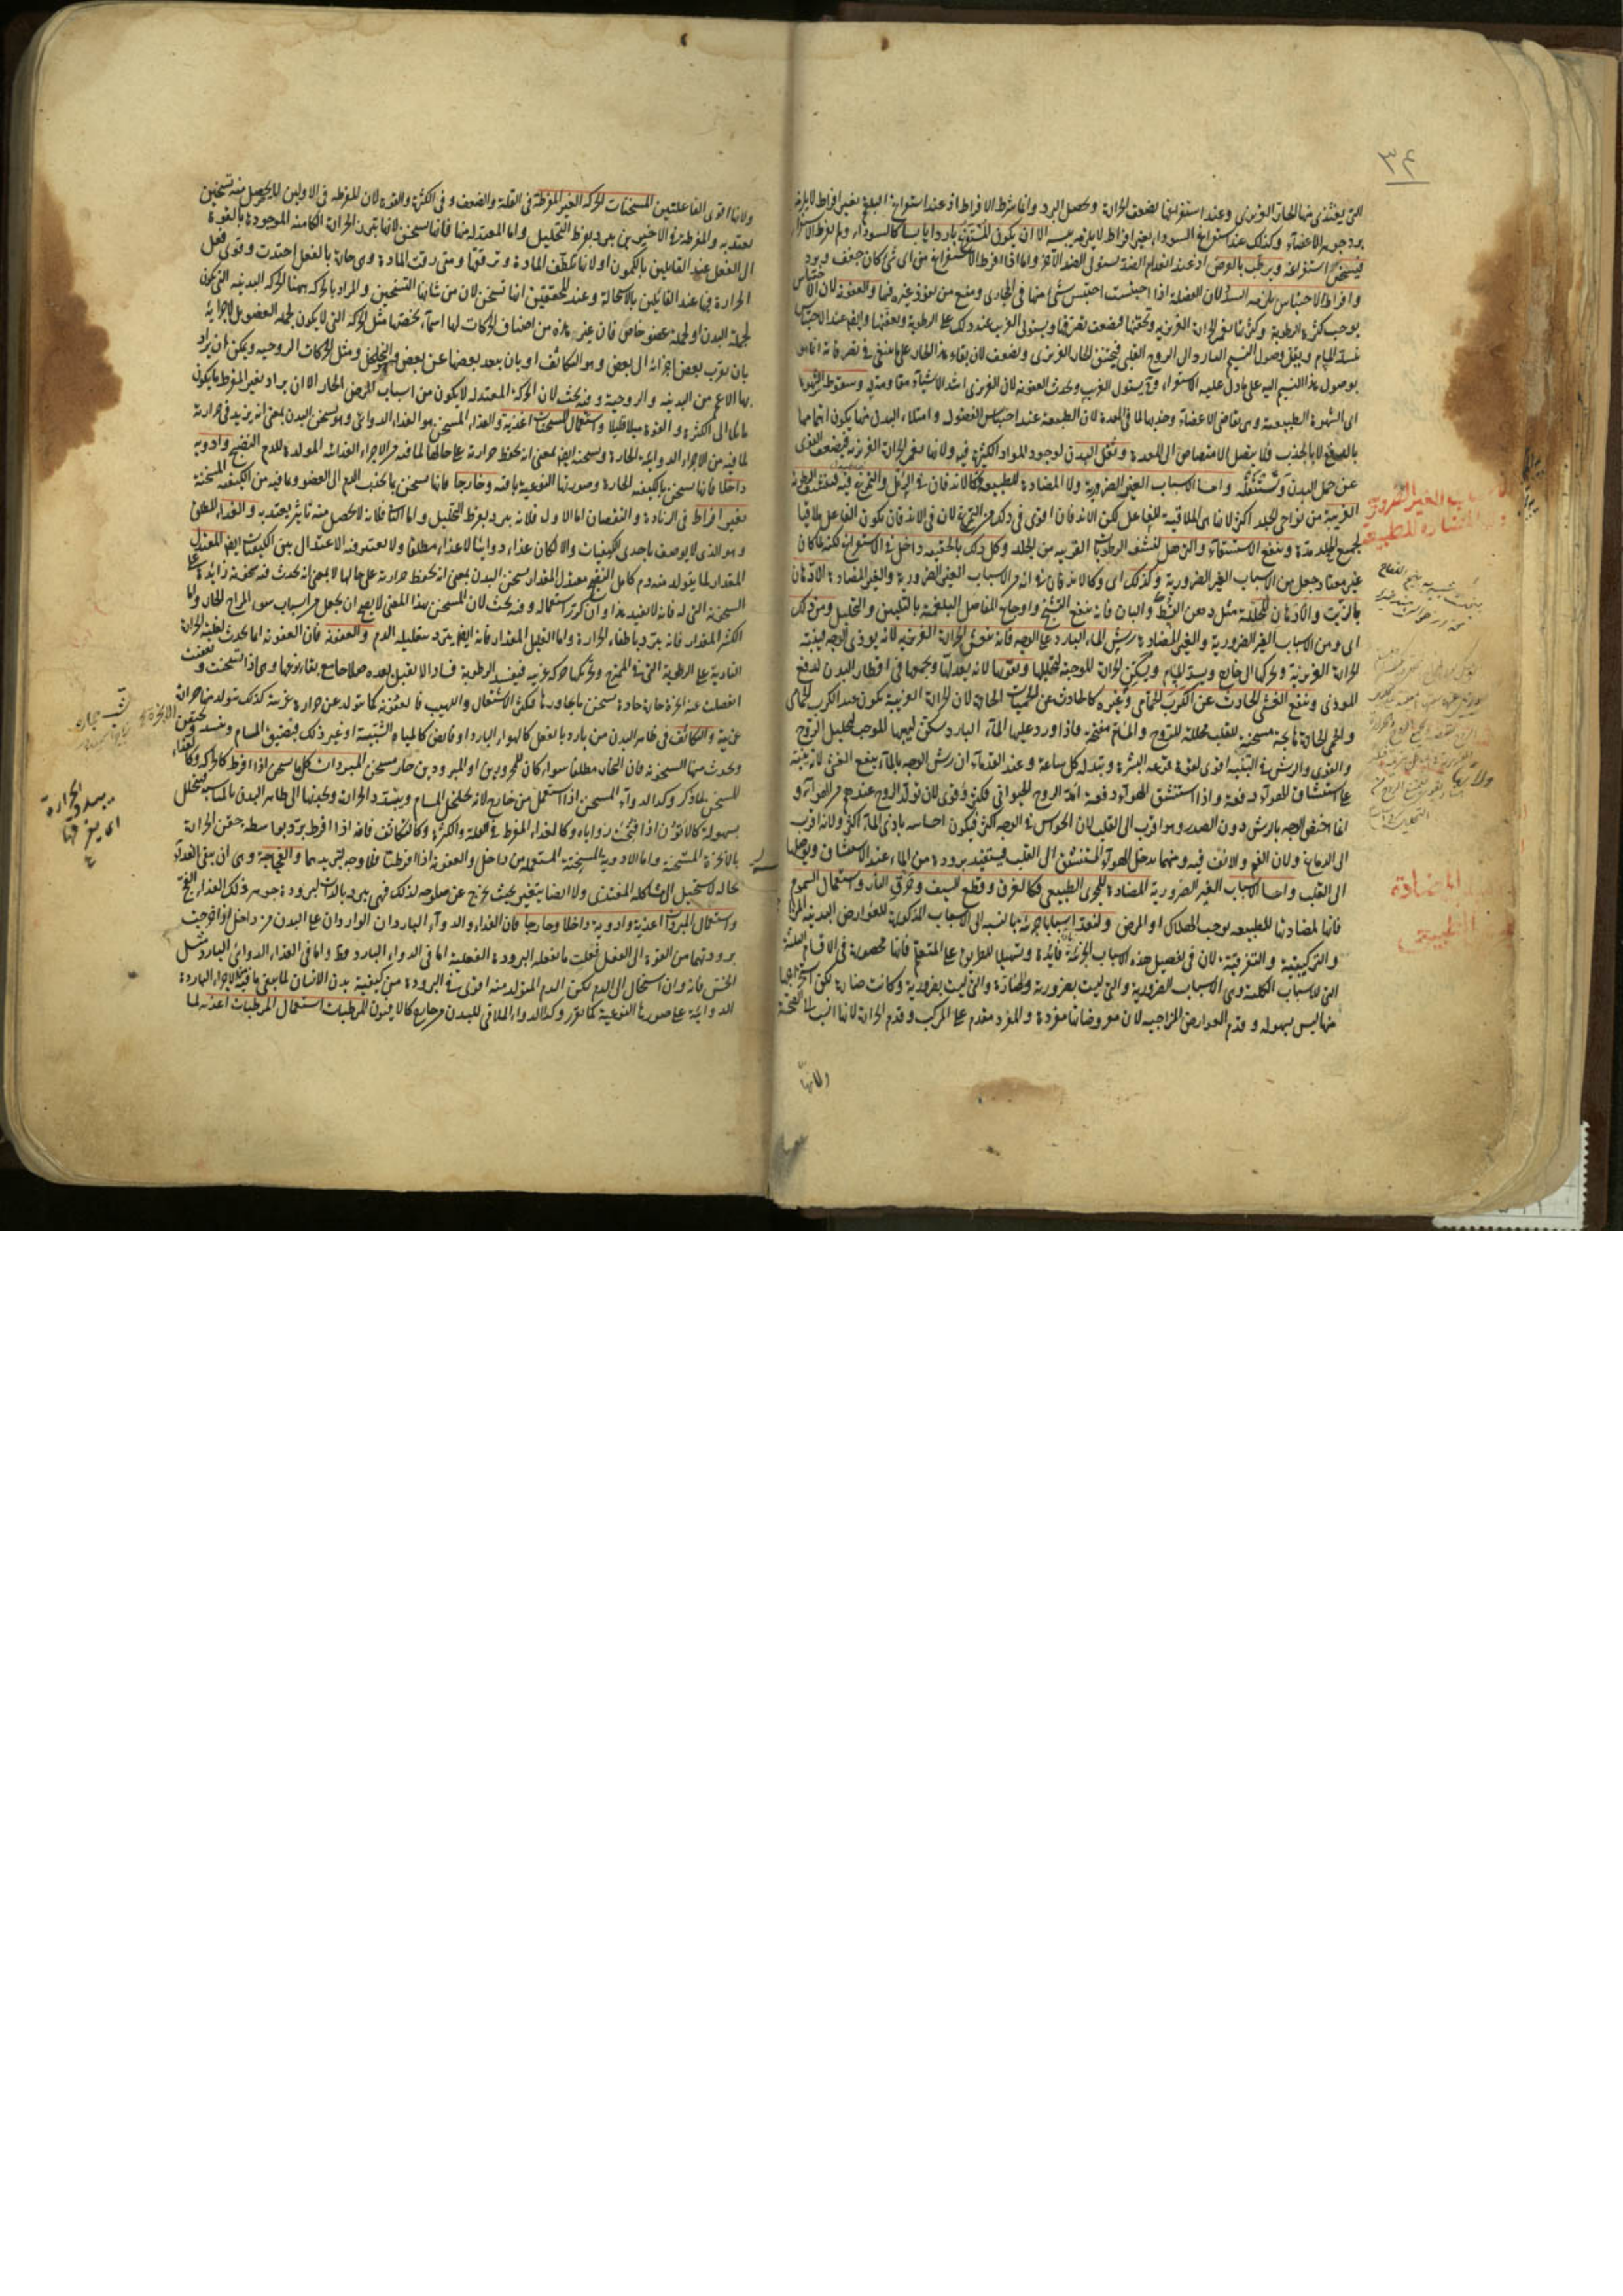 ٣٤
التى يغتذى منها الحار الغريزى وعند استفراغها يضعف الحرارة ويحصل البرد وانما شرط الافراط اذ عند استفراغ البلغم بغير افراط لا يلزم
برد جوهر الاعضاء وكذلك عند استفراغ السوداء بغير افراط لا يلزم يبسه الا ان يكون المستفرغ باردا يابسا كالسوداء ولم يفرط
استفراغه ويرطب بالعرض اذ عند انعدام الضد يستولى الضد الآخر واما اذا افرط الاستفراغ من اى شئ كان جفف وبرد
وافراط الاحتباس يلزمه السدد لان الفضلة اذا احتبست احتبس شئ منها فى المجارى ومنع من نفوذ غيره فيها والعفونة لان الاحتباس
يوجب كثرة الرطوبة وكثرتها تغمر الحرارة الغريزية وتخنقها فيضعف تصرفها ويستولى الغريب عند ذلك على الرطوبة ويعفنها وايضا عند الاحتباس
تنسد المسام ويقل وصول النسيم البارد الى الروح القلبى فيختنق الحار الغريزى ويضعف لان بقاء هذا الحار على ما ينبغى فى تصرفاته انما هو
بوصول هذا النسيم اليه على ما دل عليه الاستقراء يستولى الغريب ويحدث العفونة لان الغريزى اشد الاشياء مقاومة له وسقوط الشهوة
اى الشهوة الطبيعية وهى تقاضى الاعضاء وجذبها لما فى المعدة لان الطبيعة عند احتباس الفضول وامتلاء البدن منها يكون اهتمامها
بالدفع لا بالجذب فلا يتصل الامتصاص الى المعدة وثقل البدن لوجود المواد الكثيرة فيه ولانها تغمر الحرارة الغريزية فيضعف القوى
عن حمل البدن وتستثقله واما الاسباب الغير الضرورية ولا المضادة للطبيعة فكالاندفان فى الرمل والتمرغ فيه فينشف الرطوبة
الغريبة من نواحى الجلد اكثر لانها هى الملاقية للفاعل لكن الاندفان اقوى فى ذلك من التمرغ لان فى الاندفان يكون الفاعل ملاقيا
لجميع الجلد مدة وينفع الاستسقاء والترهل لنشف الرطوبات القريبة من الجلد وكل ذلك بالحقيقة داخل فى الاستفراغ لكنه لما كان
غير معتاد جعل من الاسباب الغير الضرورية وكذلك اى وكالاندفان فى انه من الاسباب الغير الضرورية والغير المضادة الادهان
بالزيت والادهان المحللة مثل دهن القسط والبان فانه ينفع التشنج واوجاع المفاصل البلغمية بالتليين والتحليل ومن ذلك
اى ومن الاسباب الغير الضرورية والغير المضادة رش الماء البارد على الوجه فانه ينعش الحرارة الغريزية لانه يوذى الوجه فينبه
الحرارة الغريزية ويحركها الى خارج ويسد المسام ويسكن الحرارة الموجبة لتحللها ويقويها لانه يعدلها ويجمعها فى اقطار البدن لدفع
الموذى وينفع الغشى الحادث عن الكرب الحمامى وغيره كالحادث عن الحميات الحادة لان الحرارة الغريبة تكون عند الكرب الحمامى
والحمى الحادة هايجة مسخنة للقلب محللة للروح والمسام منفتحة فاذا ورد عليها الماء البارد سكن لهيبها الموجب لتحليل الروح
والقوى والرش فى التنبيه اقوى لقوة قرعه البشرة وتبدله كل ساعة وعند القدماء ان رش الوجه بالماء ينفع الغشى لانه ينبه
على استنشاق الهواء دفعة واذا استنشق الهواء دفعة امد الروح الحيوانى فكثر وقوى لان تولد الروح عندهم من الهواء و
انما اختص الوجه بالرش دون الصدر وهو اقرب الى القلب لان الحواس فى الوجه اكثر فيكون احساسه باذى الماء اكثر ولانه اقرب
الى الدماغ ولان الفم والانف فيه ومنهما يدخل الهواء المستنشق الى القلب فيستفيد برودة من الماء عند الاستنشاق ويوصلها
الى القلب واما الاسباب الغير الضرورية المضادة للمجرى الطبيعى فكالغرق وقطع السيف وحرق النار واستعمال السموم
فانها لمضادتها للطبيعة توجب الهلاك او المرض ولنعد اسبابا جزئية بالنسبة الى الاسباب المذكورة للعوارض البدنية
والتركيبية والتفرقية لان فى تفصيل هذه الاسباب الجزئية فائدة وتسهيلا للطريق على المتعلم فانها محصورة فى الاقسام الثلثة
التى للاسباب الكلية وهى الاسباب الضرورية والتى ليست بضرورية ولا مضادة والتى ليست بضرورية وكانت مضادة لكن استخراجها
منها ليس بسهولة وقدم العوارض المزاجية لان معروضاتها مفردة والمفرد مقدم على المركب وقدم الحرارة لانها انسب بالصحة
ولانها
الاسباب الغير الضرورية
ولا المضادة للطبيعة
المضادة
للطبيعة
ولانها اقوى الفاعلتين المسخنات الحركة الغير المفرطة فى القلة والضعف وفى الكثرة والقوة لان المفرطة فى الاولين لا يحصل منه تسخين
يعتد به والمفرطة فى الاخيرين يبرد بفرط التحليل واما المعتدلة منها فانها تسخن لانها تثير الحرارة الكامنة الموجودة بالقوة
الى الفعل عند القائلين بالكمون او لانها تلطف المادة وترققها ومتى رقت المادة وهى حارة بالفعل احتدت وقوى فعل
الحرارة فيها عند القائلين بالاستحالة وعند المحققين انها تسخن لان من شانها التسخين والمراد بالحركة ههنا الحركة البدنية التى تكون
لجملة البدن او لجملة عضو خاص فان غير هذه من اصناف الحركات لها اسماء تخصها مثل الحركة التى لا يكون لجملة العضو بل لاجزائه
بان يقرب بعض اجزائه الى بعض وهو التكاثف او بان يبعد بعضها عن بعض وهو التخلخل ومثل الحركات الروحية ويمكن ان يراد
بها الاعم من البدنية والروحية وفيه بحث لان الحركة المعتدلة لا يكون من اسباب المرض الحار الا ان يراد بغير المفرط ما يكون
مائلا الى الكثرة والقوة ميلا قليلا واستعمال المسخنات اغذية والغذاء المسخن هو الغذاء الدوائى وهو يسخن البدن بمعنى انه يزيد فى حرارته
لما فيه من الاجزاء الدوائية الحارة ويسخنه ايضا بمعنى انه يحفظ حرارته على حالها لما فيه من الاجزاء الغذائية المولدة للدم النضيج وادوية
داخلا فانها تسخن بالكيفية الحارة وصورتها النوعية باقية وخارجا فانها تسخن بما يجذب الدم الى العضو وبما فيه من الكيفية المسخنة
بغير افراط فى الزيادة والنقصان اما الاول فلانه يبرد بفرط التحليل واما الثانى فلانه لا يحصل منه تاثير يعتد به والغذاء المطلق
وهو الذى لا يوصف باحدى الكيفيات والا لكان غذاء دوائيا لا غذاء مطلقا ولا يعتبر فيه الاعتدال بين الكيفيات ايضا المعتدل
المقدار لما يتولد منه دم كامل النضج معتدل المقدار يسخن البدن بمعنى انه يحفظ حرارته على حالها لا بمعنى انه يحدث فيه سخونة زايدة على
السخونة التى له فانه لا يفيد هذا وان كثر استعماله وفيه بحث لان المسخن بهذا المعنى لا يصح ان يجعل من اسباب سوء المزاج الحار واما
الكثير المقدار فانه يبرد باطفاء الحرارة واما القليل المقدار فانه ايضا يبرد بتقليله الدم والعفونة فان العفونة انما تحدث لغلبة الحرارة
النارية على الرطوبة التى فى الممتزج وتحريكها حركة غريبة فيفسد الرطوبة فسادا لا يقبل بعده صلاحا مع بقاء نوعها وهى اذا تسخنت وتعفنت
انفصلت عنه ابخرة حارة حادة تسخن ما يجاورها فكثر الاشتعال واللهيب فالعفونة كما يتولد عن حرارة غريبة كذلك يتولد منها حرارة
غريبة والتكاثف فى ظاهر البدن من بارد بالفعل كالهواء البارد او قابض كالمياه الشبية او غير ذلك فيضيق المسام وتنسد وتحتقن
ويحدث منها السخونة فان البخار مطلقا سواء كان للمحرورين او المبرودين حار مسخن المبردات كل ما يسخن اذا افرط كالحركة وكالغذاء
المسخن لما ذكر وكذا الدواء المسخن اذا استعمل من خارج لانه يخلخل المسام ويبدد الحرارة ويجذبها الى ظاهر البدن بالمناسبة فيتحلل
بسهولة كالاتون اذا فتحت زواياه وكالغذاء المفرط فى القلة والكثرة وكالتكاثف فانه اذا افرط برد بواسطة حقن الحرارة
بالابخرة المسخنة واما الادوية المسخنة المستعملة من داخل والعفونة اذا افرطتا فلا وجه لتبريدهما والفجاجة وهى ان يبقى الغذاء
بحاله لا يستحيل الى مشاكلة المغتذى ولا ايضا يتغير بحيث يخرج عن صلوحه لذلك فهى يبرد بالذات لبرودة جوهر ذلك الغذاء الفج
واستعمال المبردات اغذية وادوية داخلا وخارجا فان الغذاء والدواء الباردان الواردان على البدن من داخل اذا خرجت
برودتهما من القوة الى الفعل فعلت ما يفعله البرودة الفعلية اما فى الدواء البارد فظ واما فى الغذاء الدوائى البارد مثل
الخس فانه وان استحال الى الدم لكن الدم المتولد منه اقوى فى البرودة من كيفية بدن الانسان لما بقى ما فيه من الاجزاء الباردة
الدوائية على صورتها النوعية كما تقرر وكذا الدواء الملاقى للبدن من خارج كالافيون المرطبات استعمال المرطبات اغذية لما
يبدد الحرارة
اى يفرقها